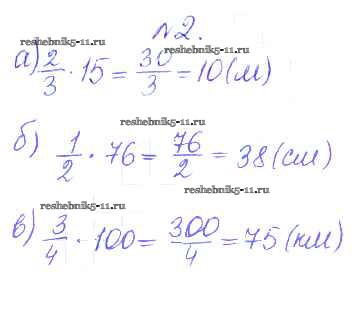 №2.
reshebnik5-11.ru
reshebnik5-11.ru
а) 2/3 · 15 = 30/3 = 10 (м)
reshebnik5-11.ru
б) 1/2 · 76 = 76/2 = 38 (см)
reshebnik5-11.ru
reshebnik5-11.ru
в) 3/4 · 100 = 300/4 = 75 (км)